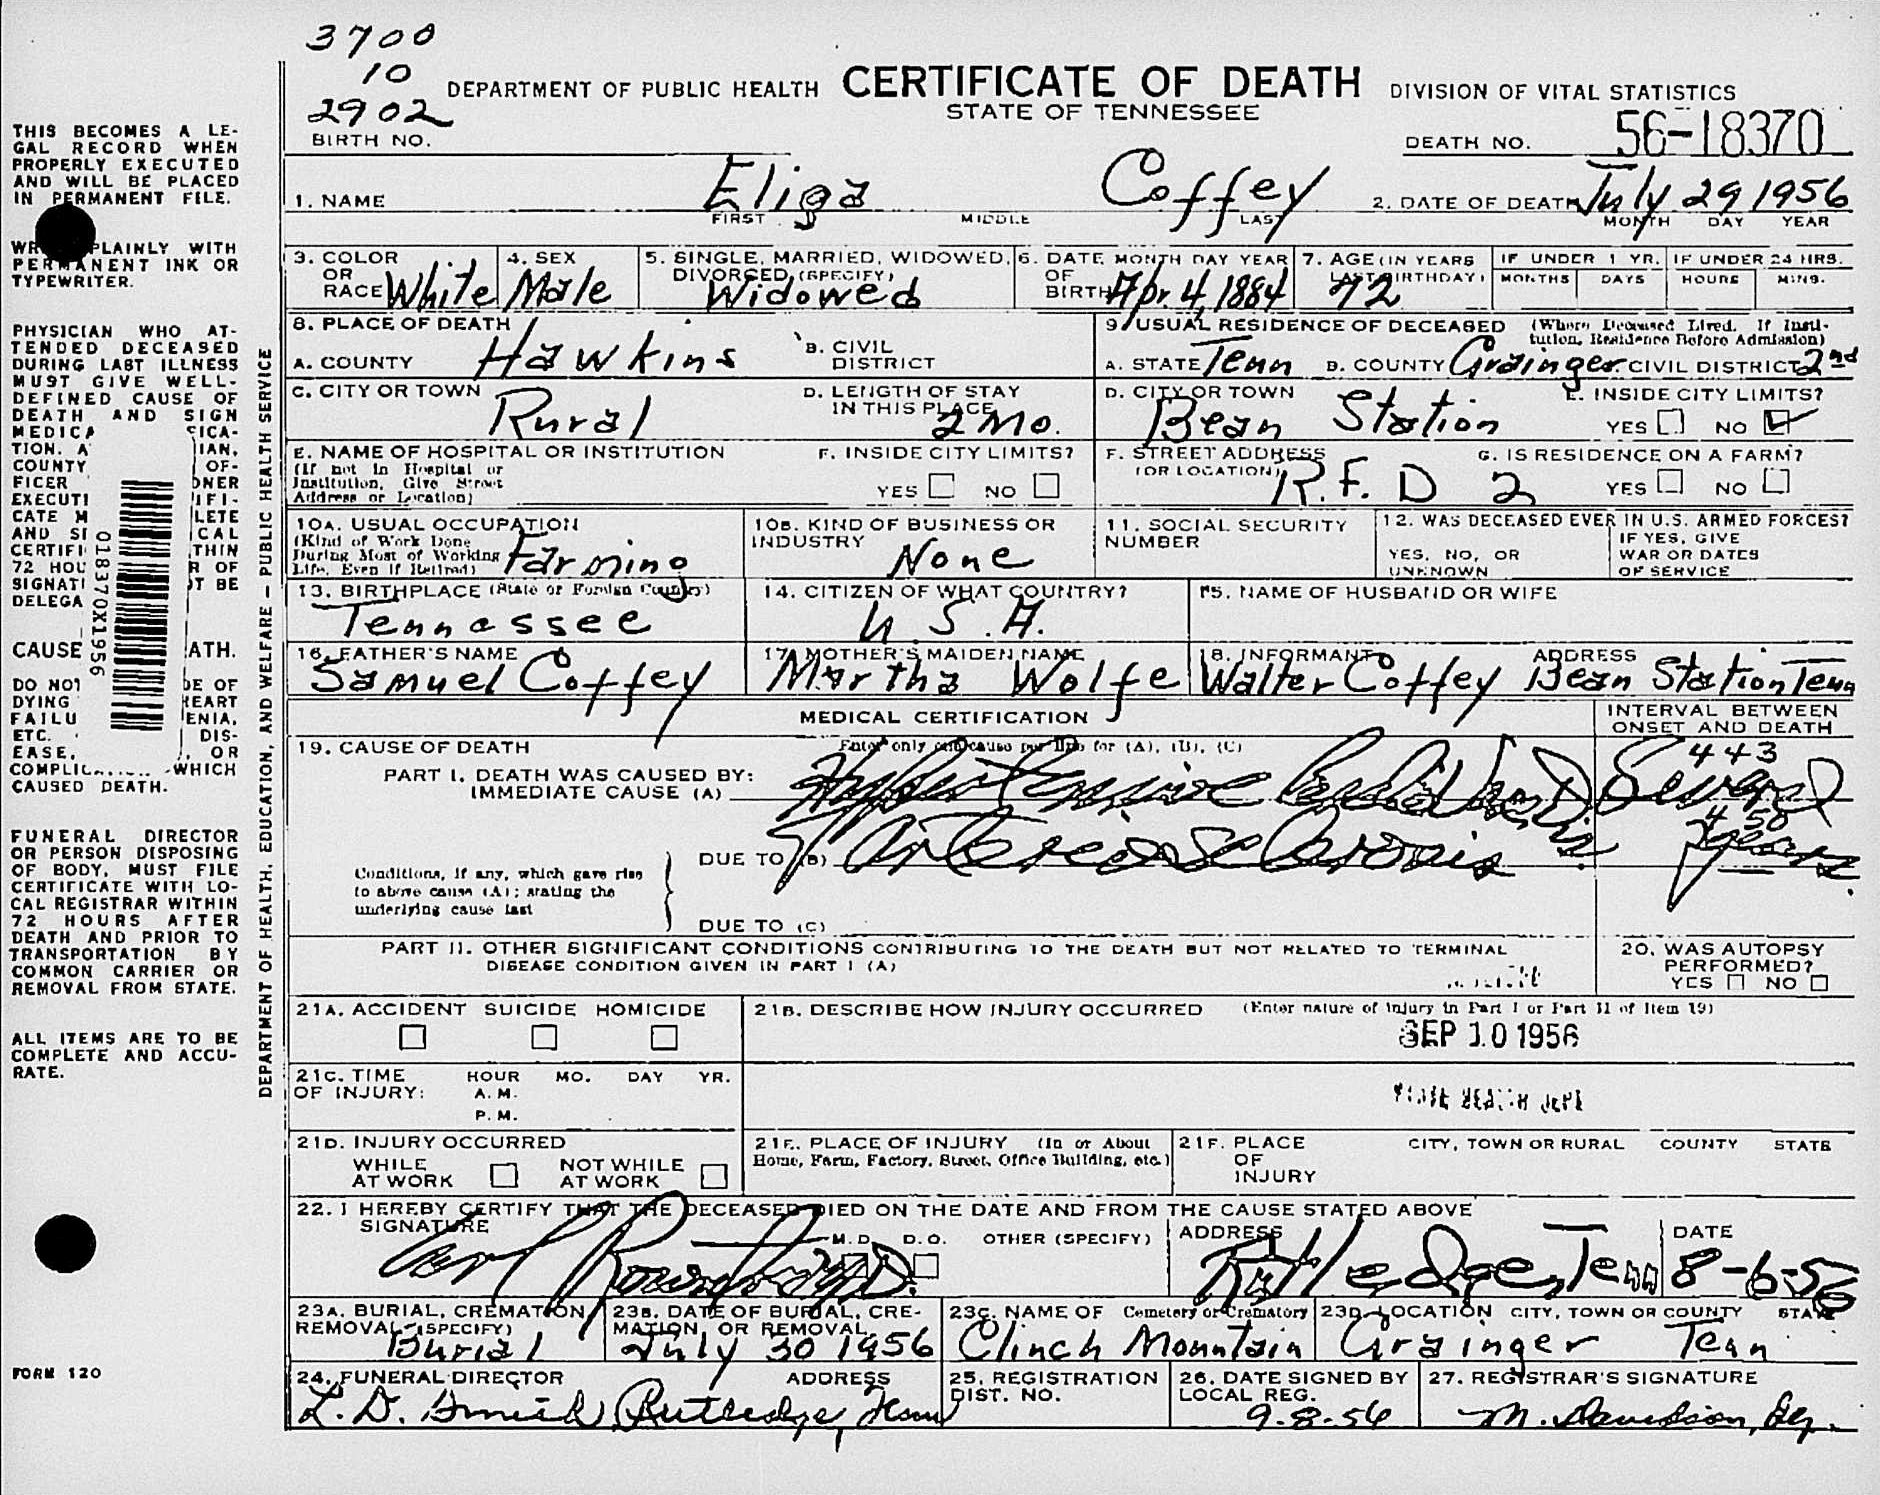 3700
10
2902
DEPARTMENT OF PUBLIC HEALTH CERTIFICATE OF DEATH DIVISION OF VITAL STATISTICS
STATE OF TENNESSEE
BIRTH NO.
DEATH NO. 56-18370
1. NAME Eliga Coffey 2. DATE OF DEATH July 29 1956
FIRST MIDDLE LAST MONTH DAY YEAR
3. COLOR OR RACE White
4. SEX Male
5. SINGLE, MARRIED, WIDOWED, DIVORCED (SPECIFY) Widowed
6. DATE OF BIRTH MONTH DAY YEAR Apr. 4, 1884
7. AGE (IN YEARS LAST BIRTHDAY) 72
IF UNDER 1 YR. MONTHS DAYS
IF UNDER 24 HRS. HOURS MINS.
8. PLACE OF DEATH
A. COUNTY Hawkins
B. CIVIL DISTRICT
9. USUAL RESIDENCE OF DECEASED (Where Deceased Lived. If Insti-
tution, Residence Before Admission)
A. STATE Tenn B. COUNTY Grainger CIVIL DISTRICT 2nd
C. CITY OR TOWN Rural
D. LENGTH OF STAY IN THIS PLACE 2 Mo.
D. CITY OR TOWN Bean Station
E. INSIDE CITY LIMITS? YES NO
E. NAME OF HOSPITAL OR INSTITUTION
(If not in Hospital or
Institution, Give Street
Address or Location)
F. INSIDE CITY LIMITS? YES NO
F. STREET ADDRESS (OR LOCATION) R.F.D 2
G. IS RESIDENCE ON A FARM? YES NO
10A. USUAL OCCUPATION
(Kind of Work Done
During Most of Working
Life, Even If Retired) Farming
10B. KIND OF BUSINESS OR INDUSTRY None
11. SOCIAL SECURITY NUMBER
12. WAS DECEASED EVER IN U.S. ARMED FORCES?
YES, NO, OR UNKNOWN
IF YES, GIVE WAR OR DATES OF SERVICE
13. BIRTHPLACE (State or Foreign Country) Tennassee
14. CITIZEN OF WHAT COUNTRY? U.S.A.
15. NAME OF HUSBAND OR WIFE
16. FATHER'S NAME Samuel Coffey
17. MOTHER'S MAIDEN NAME Martha Wolfe
18. INFORMANT ADDRESS Walter Coffey Bean Station Tenn
MEDICAL CERTIFICATION
INTERVAL BETWEEN
ONSET AND DEATH
19. CAUSE OF DEATH Enter only one cause per line for (A), (B), (C)
443
PART I. DEATH WAS CAUSED BY:
IMMEDIATE CAUSE (A) Hypertensive Several
450
DUE TO (B) Arteriosclerosis years.
Conditions, if any, which gave rise
to above cause (A); stating the
underlying cause last
DUE TO (C)
PART II. OTHER SIGNIFICANT CONDITIONS CONTRIBUTING TO THE DEATH BUT NOT RELATED TO TERMINAL
DISEASE CONDITION GIVEN IN PART I (A)
20. WAS AUTOPSY
PERFORMED?
YES NO
21A. ACCIDENT SUICIDE HOMICIDE
21B. DESCRIBE HOW INJURY OCCURRED (Enter nature of injury in Part I or Part II of Item 19)
SEP 10 1956
21C. TIME OF INJURY: HOUR MO. DAY YR.
A.M.
P.M.
STATE HEALTH DEPT
21D. INJURY OCCURRED
WHILE AT WORK NOT WHILE AT WORK
21E. PLACE OF INJURY (In or About
Home, Farm, Factory, Street, Office Building, etc.)
21F. PLACE OF INJURY CITY, TOWN OR RURAL COUNTY STATE
22. I HEREBY CERTIFY THAT THE DECEASED DIED ON THE DATE AND FROM THE CAUSE STATED ABOVE
SIGNATURE Carl M.D.
M.D. D.O. OTHER (SPECIFY)
ADDRESS Rutledge, Tenn
DATE 8-6-56
23A. BURIAL, CREMATION, REMOVAL (SPECIFY) Burial
23B. DATE OF BURIAL, CREMATION, OR REMOVAL July 30 1956
23C. NAME OF Cemetery or Crematory Clinch Mountain
23D. LOCATION CITY, TOWN OR COUNTY STATE Grainger Tenn
24. FUNERAL DIRECTOR ADDRESS
L. D. Rutledge, Tenn
25. REGISTRATION DIST. NO.
26. DATE SIGNED BY LOCAL REG. 9-8-56
27. REGISTRAR'S SIGNATURE M. Davidson,
THIS BECOMES A LE-
GAL RECORD WHEN
PROPERLY EXECUTED
AND WILL BE PLACED
IN PERMANENT FILE.
PLAINLY WITH
PERMANENT INK OR
TYPEWRITER.
PHYSICIAN WHO AT-
TENDED DECEASED
DURING LAST ILLNESS
MUST GIVE WELL-
DEFINED CAUSE OF
DEATH AND SIGN
018370X1956
FUNERAL DIRECTOR
OR PERSON DISPOSING
OF BODY, MUST FILE
CERTIFICATE WITH LO-
CAL REGISTRAR WITHIN
72 HOURS AFTER
DEATH AND PRIOR TO
TRANSPORTATION BY
COMMON CARRIER OR
REMOVAL FROM STATE.
ALL ITEMS ARE TO BE
COMPLETE AND ACCU-
RATE.
FORM 120
DEPARTMENT OF HEALTH, EDUCATION, AND WELFARE — PUBLIC HEALTH SERVICE